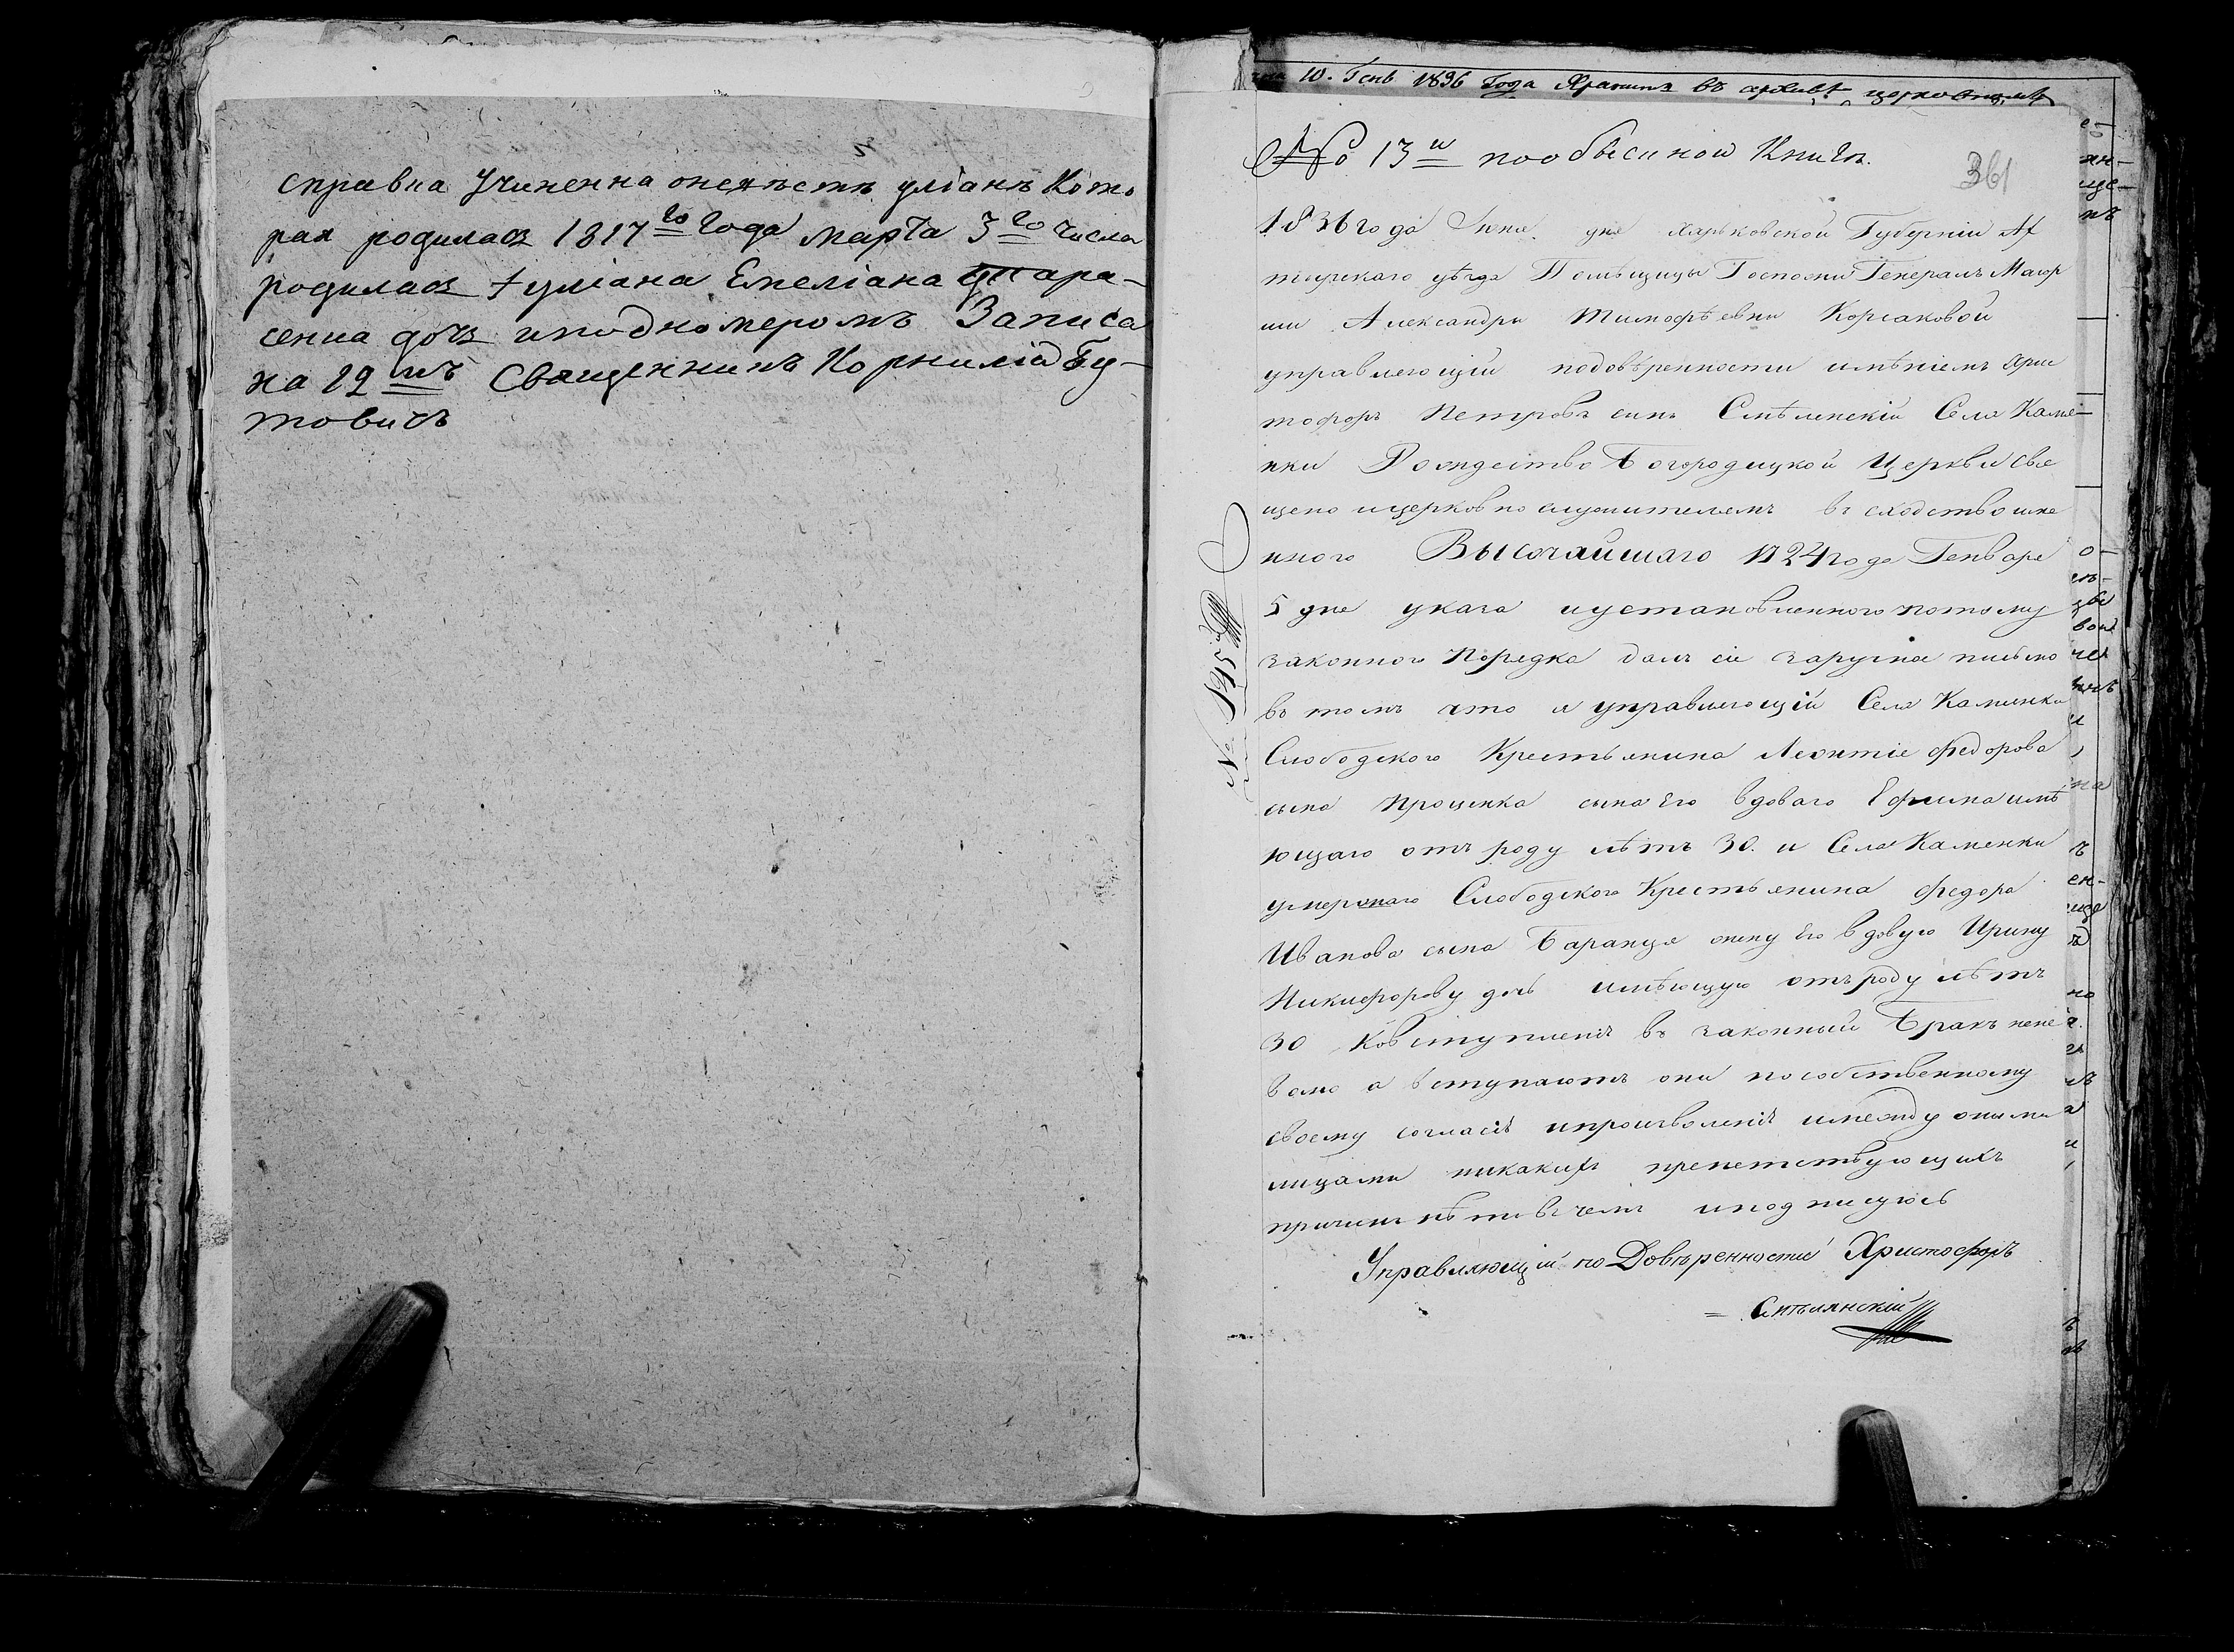 справка Учиненна онеяѣстѣ уліанѣ Кото
рая родилась 1817го Года Марта 3го числа
родилась Іуліана Емеліана Тара-
сенка дочь и под номеромъ Записа
на 12мъ Священникъ Корнилій Бу-
товичъ
10. Генв 1836 Года Хранит въ архивѣ церковномъ
№ 13и по обыскной Книгѣ.
361
1836 года дня Харьковской Губерніи Ах
тырскаго уѣзда Помѣщицы Госпожи Генералъ Маіор
ши Александры Тимофѣевны Корсаковой
управляющій по довѣренности имѣніемъ Хрис
тофоръ Петровъ сынъ Смѣлянскій Села Каме-
нки Рождество Богородицкой Церкви свя
щено и церковно служителямъ въ сходство имя
нного Высочайшаго 1724 года Генваря
5 дня указа и установленного по тому
законного Порядка далъ сіе заручна письмо
въ томъ что я управляющій Села Каменки
Слободского Крестьянина Леонтія Федорова
сына Проценка сына Его вдоваго Ефима имѣ
ющаго отъ роду лѣтъ 30. и Села Каменки
умершаго Слободского Крестьянина Федора
Иванова сына Баранця жену Его вдовую Ирину
Никифорову дочь имѣющую отъ роду лѣтъ
30 Ко вступленію въ законный Бракъ не не
волю а вступаютъ они по собственному
своему согласію и произволенію и между оными
лицами никакихъ препетствующихъ
причинъ нѣтъ въ чемъ и подписуюсь
Управляющій по Довѣренности Христофоръ
Смѣлянскій